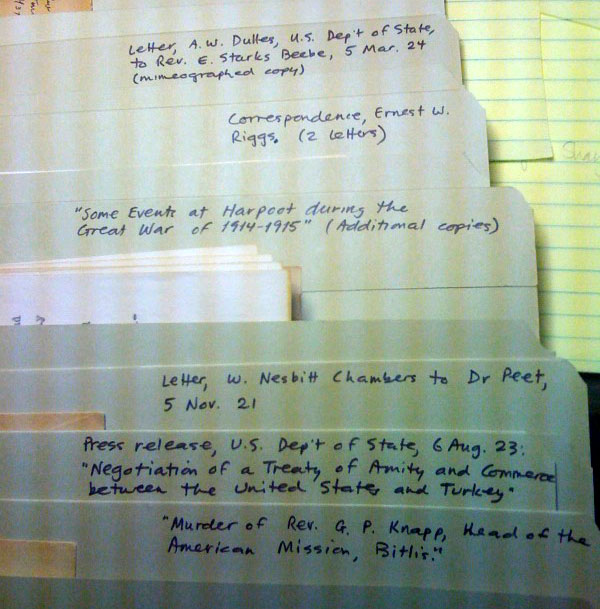 Letter, A.W. Dulles, U.S. Dep't of State,
to Rev. E. Starks Beebe, 5 Mar. 24
(mimeographed copy)
Correspondence, Ernest W.
Riggs. (2 letters)
"Some Events at Harpoot during the
Great War of 1914-1915" (Additional copies)
Letter, W. Nesbitt Chambers to Dr Peet,
5 Nov. 21
Press release, U.S. Dep't of State, 6 Aug. 23:
"Negotiation of a Treaty of Amity and Commerce
between the United States and Turkey"
"Murder of Rev. G. P. Knapp, Head of the
American Mission, Bitlis."